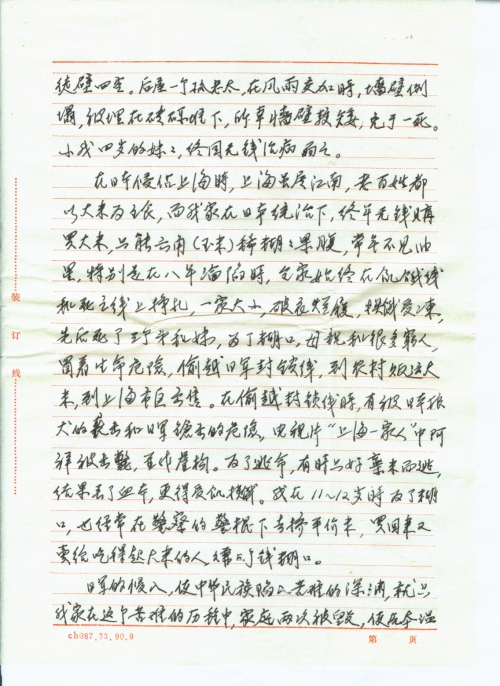 徒壁四空。后屋一个孤老太,在风雨交加时,墙壁倒
塌,被埋在砖砾堆下,所幸墙壁较矮,免于一死。
小我四岁的妹妹,终因无钱治病而亡。
在日军侵占上海时,上海虽属江南,老百姓都
以大米为主食,而我家在日军统治下,终年无钱购
买大米,只能六角(玉米)稀糊糊果腹,常年不见油
星,特别是在八年沦陷时,全家始终在饥饿线
和死亡线上挣扎,一家大小,破衣短履,挨饿受冻,
先后死了弟和妹,为了糊口,母亲和很多穷人,
冒着生命危险,偷越日军封锁线,到农村贩运大
米,到上海市区去售。在偷越封锁线时,有被日军狼
犬的袭击和日军枪击的危险,电视片“上海一家人”中阿
祥被击毙,真作虚构。为了逃命,有时只好弃米而逃,
结果丢了血本,更得受饥挨饿。我在11~12岁时为了糊
口,也经常在警察的警棍下去挤平价米,买回来又
卖给吃得起大米的人,赚几个钱糊口。
日军的侵入,使中华民族陷入苦难的深渊,就只
我家在这个苦难的历程中,家庭两次被毁,使原本温
装订线
ch087.33.90.9
第 页